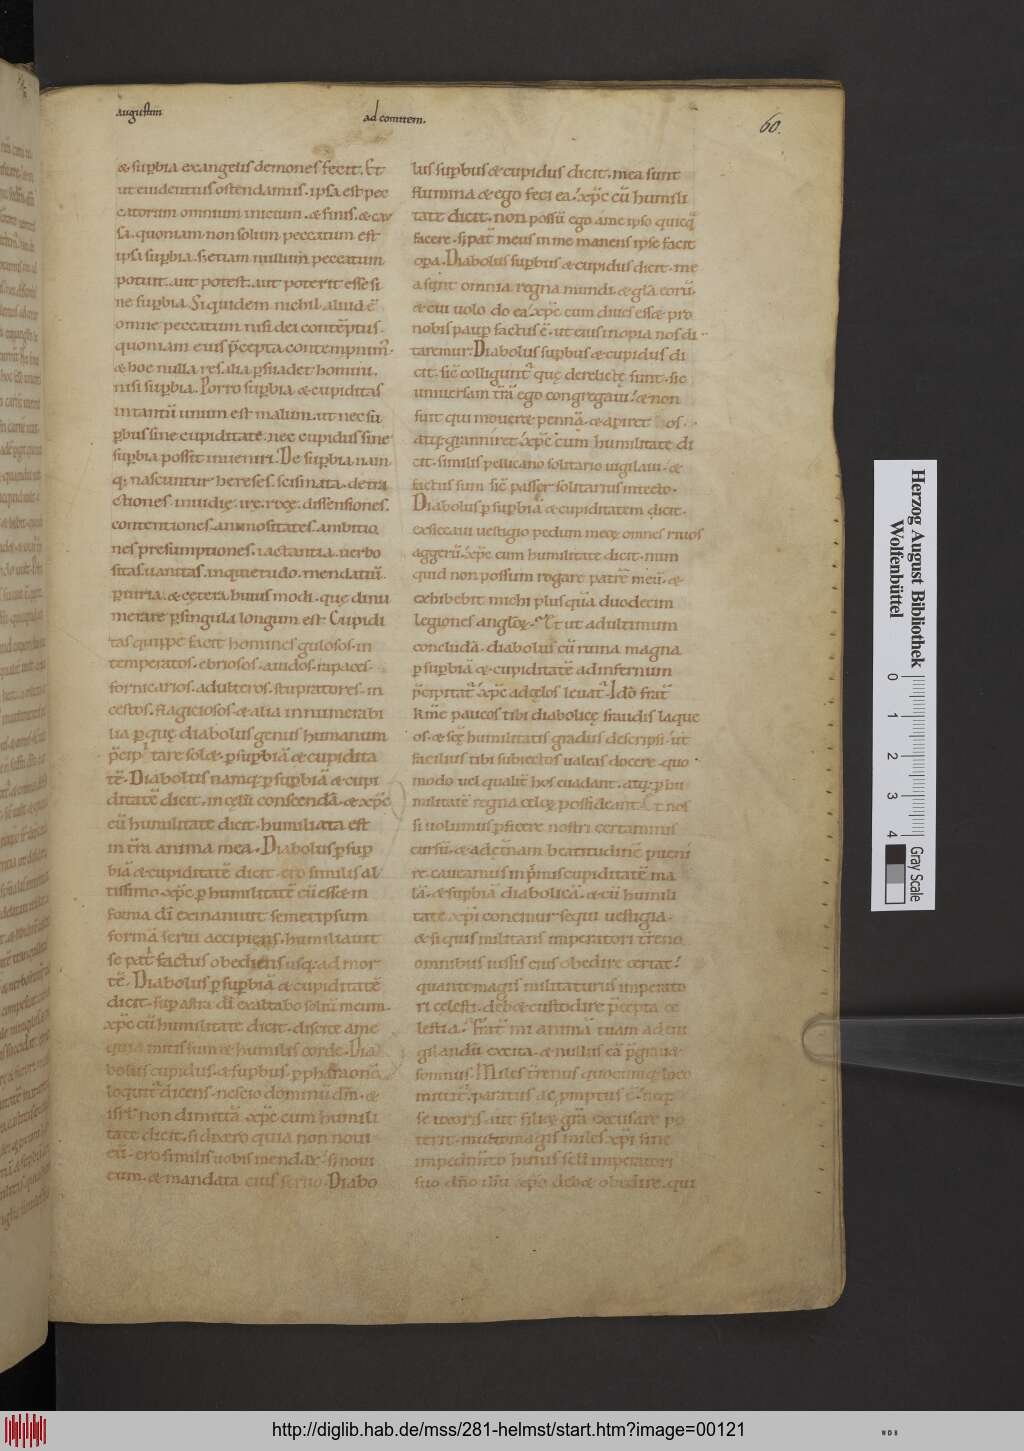 augustini
ad comitem.
60.
& supbia ex angelis demones fecit. Et
ut euidentius ostendamus. ipsa est pec
catorum omnium inicium. & finis. & cau
sa. quoniam non solum peccatum est
ipsa supbia. s; etiam nullum peccatum
potuit. aut potest. aut poterit esse si
ne supbia. Siquidem nichil aliud ē
omne peccatum nisi dei contēptus.
quoniam eius p̄cepta contempnim̄.
& hoc nulla res alia psuadet homini.
nisi supbia. Porro supbia & cupiditas
in tantū unum est malum. ut nec su
pbus sine cupiditate. nec cupidus sine
supbia possit inueniri. De supbia nam
q; nascuntur hereses. scismata. detra
ctiones. inuidię. irę. rixę. dissensiones.
contentiones. animositates. ambitio
nes presumptiones. iactantia. uerbo
sitas. uanitas. inquietudo. mendatiū.
piuria. & cetera huius modi. quę dinu
merare p singula longum est. Cupidi
tas quippe facit homines gulosos. in
temperatos. ebriosos. auidos. rapaces.
fornicarios. adulteros. stupratores. in
cestos. flagiciosos. & alia innumerabi
lia p quę diabolus genus humanum
p̄cipitare solet. p supbiā & cupidita
tē. Diabolus namq; p supbiā & cupi
ditatē dicit. in cęlū conscendā. & xp̄c
cū humilitate dicit. humiliata est
in tr̄a anima mea. Diabolus p sup
biā & cupiditatē dicit. ero similis al
tissimo. xp̄c p humilitatē cū esset in
forma dī exinaniuit semetipsum
formā serui accipiens. humiliauit
se pat̄ factus obediens usq; ad mor
tē. Diabolus p supbiā & cupiditatē
dicit. sup astra dī exaltabo soliū meum.
xp̄c cū humilitate dicit. discite a me
quia mitis sum & humilis corde. Dia
bolus cupidus & supbus p pharaonē
loquit̄ dicens. nescio dominū dm̄. &
isrl̄ non dimittā. xp̄c cum humili
tate dicit. si dixero quia non noui
eū. ero similis uobis mendax. si noui
eum. & mandata eius seruo. Diabo
lus supbus & cupidus dicit. mea sunt
flumina & ego feci ea. xp̄c cū humili
tate dicit. non possū ego a me ipso quicq̄
facere. s; pat̄ meus in me manens ipse facit
opa. Diabolus supbus & cupidus dicit. me
a sunt omnia regna mundi. & gl̄a eorū.
& cui uolo do ea. xp̄c cum diues esset pro
nobis paup factus ē. ut eius inopia nos di
taremur. Diabolus supbus & cupidus di
cit. sic̄ colligunt̄ quę derelictę sunt. sic
uniuersam tr̄ā ego congregaui. & non
fuit qui moueret pennā. & apiret os.
atq; ganniret. xp̄c cum humilitate di
cit. similis pellicano solitario uigilaui. &
factus sum sic̄ passer solitarius in tecto.
Diabolus p supbiā & cupiditatem dicit.
exsiccaui uestigio pedum meoꝝ omnes riuos
aggerū. xp̄c cum humilitate dicit. num
quid non possum rogare patrē meū. &
exhibebit michi plus quā duodecim
legiones angloꝝ. Et ut ad ultimum
concludā. diabolus cū ruina magna
p supbiā & cupiditatē ad infernum
p̄cipitat̄. xp̄c ad cęlos leuat̄. Idō frat̄
kme paucos tibi diabolicę fraudis laque
os. & scę humilitatis gradus descripsi. ut
facilius tibi subiectos ualeas docere. quo
modo uel qualit̄ hos euadant. atq; p hu
militatē regna celoꝝ possideant. Et nos
si uolumus pficere nostri certaminis
cursū. & ad et̄nam beatitudinē pueni
re. caueamus inp̄mis cupiditatē ma
lā. & supbiā diabolicā. & cū humili
tate xp̄i conemur sequi uestigia.
& si quis militans imperatori tr̄reno
omnibus iussis eius obedire certat.
quanto magis militaturus imperato
ri celesti. debet custodire p̄cepta ce
lestia. Frat̄ mi animā tuam ad eui
gilandū excita. & nullus eā p̄grauet
somnus. Miles t̄renus quocumq; loco
mittit̄. paratus ac pmptus ē.
se uxoris aut filioꝝ gr̄a excusare po
terit. multomagis miles xp̄i sine
impedim̄to huius scl̄i imperatori
suo dn̄o ih̄u xp̄o debet obedire. qui
Herzog August Bibliothek
Wolfenbüttel
0 1 2 3 4
Gray Scale
http://diglib.hab.de/mss/281-helmst/start.htm?image=00121